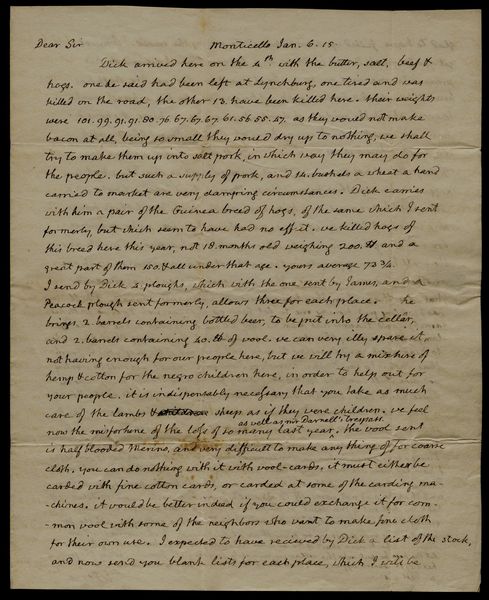 Dear Sir Monticello Jan. 6. 15
Dick arrived here on the 4th with the butter, salt, beef &
hogs. one he said had been left at Lynchburg, one tired and was
killed on the road, the other 13. have been killed here. their weights
were 101. 99. 91. 91. 80. 76. 67. 67. 67. 61. 56. 55. 47. as they would not make
bacon at all, being so small they would dry up to nothing, we shall
try to make them up into salt pork, in which way they may do for
the people. but such a supply of pork, and 14. bushels a wheat a hand
carried to market are very damping circumstances. Dick carries
with him a pair of the Guinea breed of hogs, of the same which I sent
formerly, but which seem to have had no effect. we killed hogs of
this breed here this year, not 18. months old weighing 200. ℔ and a
great part of them 150. & all under that age. yours average 73 3/4.
I send by Dick 2. ploughs, which with the one sent by James, and a
Peacock plough sent formerly, allows three for each place. he
brings 2. barrels containing bottled beer, to be put into the cellar,
and 2. barrels containing 40. ℔ of wool. we can very illy spare it,
not having enough for our people here, but we will try a mixture of
hemp & cotton for the negro children here, in order to help out for
your people. it is indispensably necessary that you take as much
care of the lambs & sheep as if they were children. we feel
now the misfortune of the loss of so many last year,
as well as mr Darnell's trespass. the wool sent
is half blooded Merino, and very difficult to make any thing of for coarse
cloth. you can do nothing with it with wool-cards, it must either be
carded with fine cotton cards, or carded at some of the carding ma-
-chines. it would be better indeed if you could exchange it for com-
-mon wool with some of the neighbors who want to make fine cloth
for their own use. I expected to have recieved by Dick a list of the stock,
and now send you blank lists for each place, which I will be